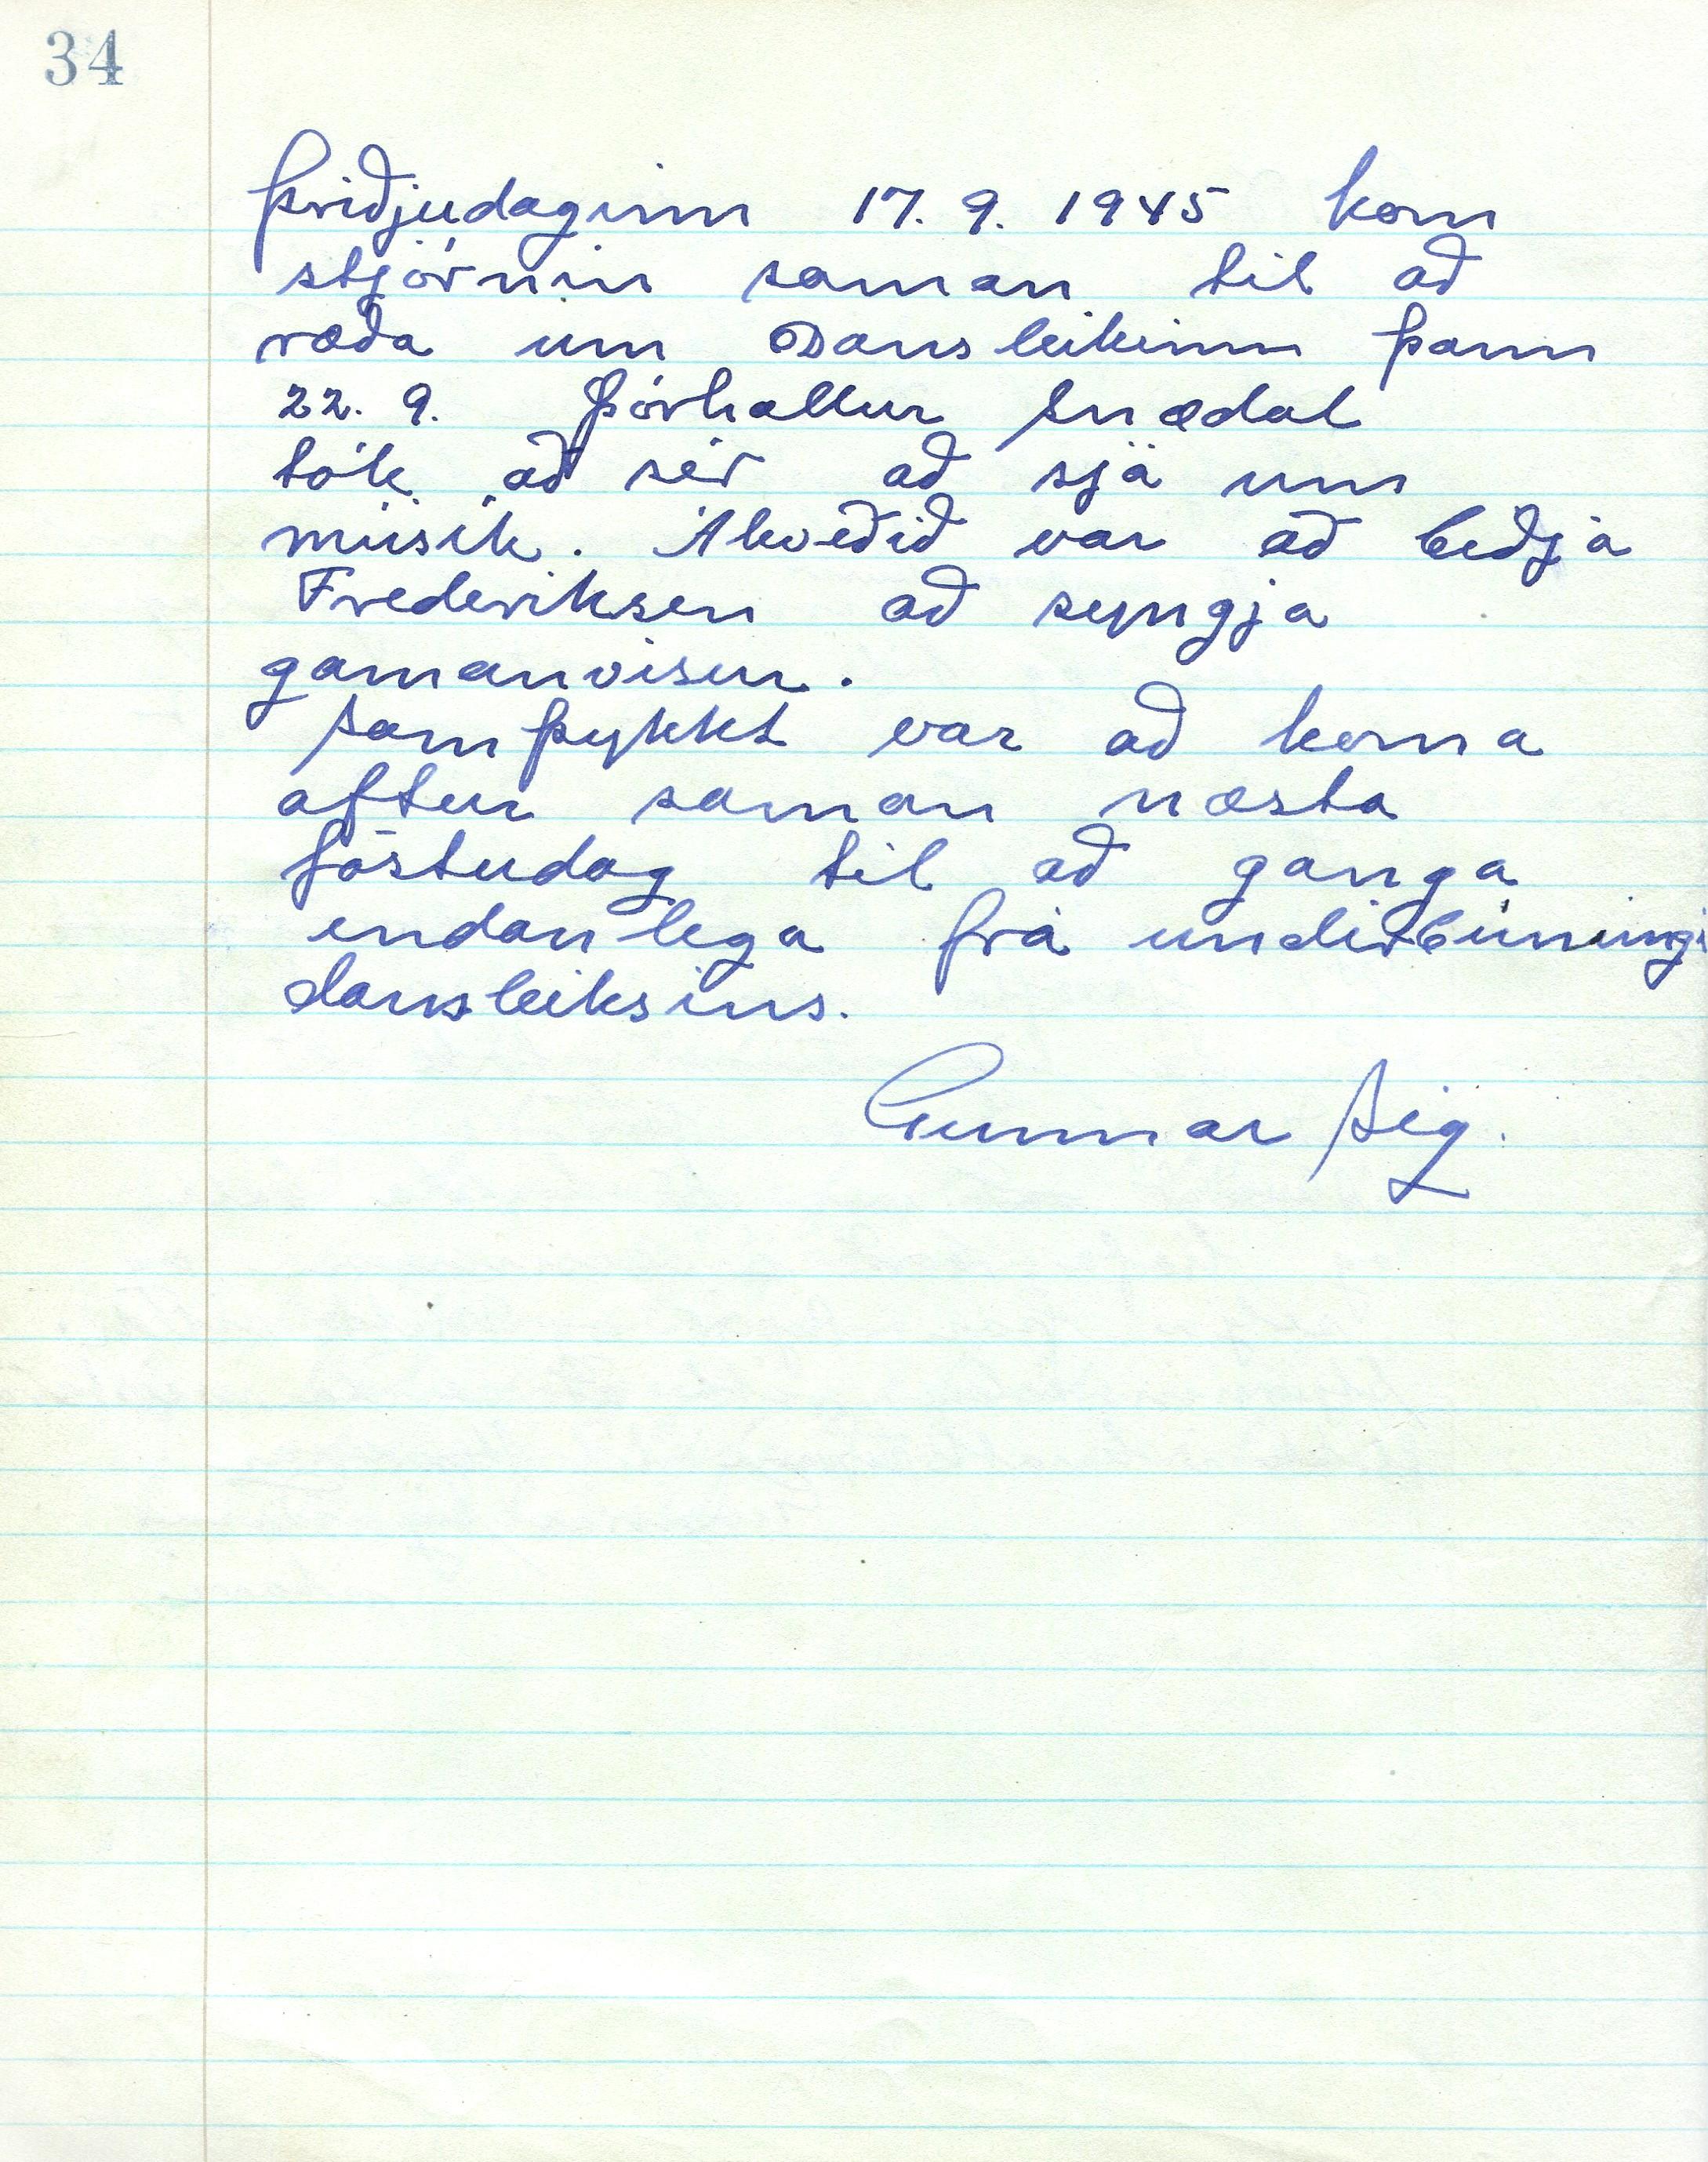 34
Þriðjudaginn 17. 9. 1945 kom
stjórnin saman til að
ræða um Dansleikinn þann
22. 9. Þórhallur Snædal
tók að sér að sjá um
músik. Ákveðið var að biðja
Frederiksen að syngja
gamanvísur.
Samþykkt var að koma
aftur saman næsta
föstudag til að ganga
endanlega frá undirbúningi
dansleiksins.
Gunnar Sig.